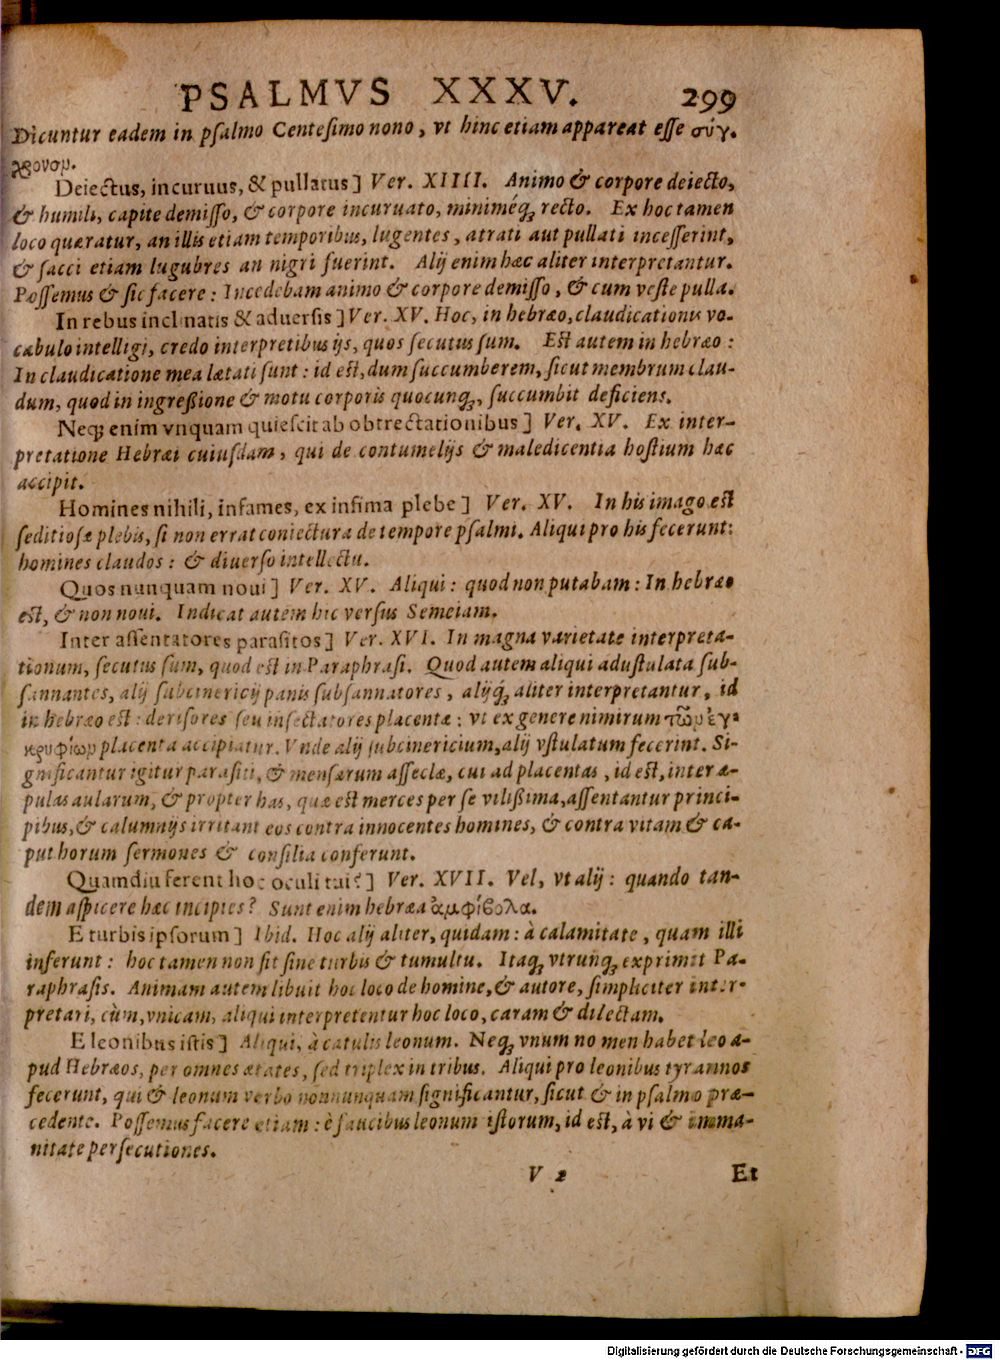 PSALMVS XXXV. 299
Dicuntur eadem in psalmo Centesimo nono, vt hinc etiam appareat esse σύγ-
χρονομ.
Deiectus, incuruus, & pullatus] Ver. XIIII. Animo & corpore deiecto,
& humili, capite demisso, & corpore incuruato, miniméq; recto. Ex hoc tamen
loco quæratur, an illis etiam temporibus, lugentes, atrati aut pullati incesserint,
& sacci etiam lugubres an nigri fuerint. Alij enim hæc aliter interpretantur.
Possemus & sic facere: Incedebam animo & corpore demisso, & cum veste pulla.
In rebus inclinatis & aduersis] Ver. XV. Hoc, in hebræo, claudicationis vo-
cabulo intelligi, credo interpretibus ijs, quos secutus sum. Est autem in hebræo:
In claudicatione mea lætati sunt: id est, dum succumberem, sicut membrum clau-
dum, quod in ingreßione & motu corporis quocunq;, succumbit deficiens.
Neq; enim vnquam quiescit ab obtrectationibus] Ver. XV. Ex inter-
pretatione Hebræi cuiusdam, qui de contumelijs & maledicentia hostium hæc
accipit.
Homines nihili, infames, ex infima plebe] Ver. XV. In his imago est
seditiosæ plebis, si non errat coniectura de tempore psalmi. Aliqui pro his fecerunt:
homines claudos: & diuerso intellectu.
Quos nunquam noui] Ver. XV. Aliqui: quod non putabam: In hebræo
est, & non noui. Indicat autem hic versus Semeiam.
Inter assentatores parasitos] Ver. XVI. In magna varietate interpreta-
tionum, secutus sum, quod est in Paraphrasi. Quod autem aliqui adustulata sub-
sannantes, alij subcinericij panis subsannatores, alijq; aliter interpretantur, id
in hebræo est: derisores seu insectatores placentæ: vt ex genere nimirum τῶμ ἐγ-
κρυφίωμ placenta accipiatur. Vnde alij subcinericium, alij vstulatum fecerint. Si-
gnificantur igitur parasiti, & mensarum asseclæ, cui ad placentas, id est, inter æ-
pulas aularum, & propter has, quæ est merces per se vilißima, assentantur princi-
pibus, & calumnijs irritant eos contra innocentes homines, & contra vitam & ca-
put horum sermones & consilia conferunt.
Quamdiu ferent hoc oculi tui?] Ver. XVII. Vel, vt alij: quando tan-
dem aspicere hæc incipies? Sunt enim hebræa ἀμφίβολα.
E turbis ipsorum] Ibid. Hoc alij aliter, quidam: à calamitate, quam illi
inferunt: hoc tamen non fit sine turbis & tumultu. Itaq; vtrunq; exprimit Pa-
raphrasis. Animam autem libuit hoc loco de homine, & autore, simpliciter inter-
pretari, cùm, vnicam, aliqui interpretentur hoc loco, caram & dilectam.
E leonibus istis] Aliqui, à catulis leonum. Neq; vnum no men habet leo a-
pud Hebræos, per omnes ætates, sed triplex in tribus. Aliqui pro leonibus tyrannos
fecerunt, qui & leonum verbo nonnunquam significantur, sicut & in psalmo præ-
cedente. Possemus facere etiam: è faucibus leonum istorum, id est, à vi & imma-
nitate persecutiones.
V 2 Et
Digitalisierung gefördert durch die Deutsche Forschungsgemeinschaft - DFG